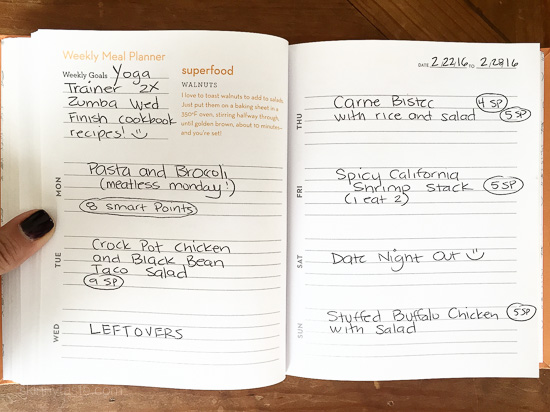 Weekly Meal Planner
Weekly Goals Yoga
Trainer 2X
Zumba Wed
Finish cookbook
recipes!
superfood
WALNUTS
I love to toast walnuts to add to salads.
Just put them on a baking sheet in a
350°F oven, stirring halfway through,
until golden brown, about 10 minutes—
and you're set!
MON
Pasta and Brocoli
(meatless monday!)
8 smart Points
TUE
Crock Pot Chicken
and Black Bean
Taco Salad
9 SP
WED
LEFTOVERS
DATE 2/22/16 TO 2/28/16
THU
Carne Bistec 4 SP
with rice and salad 5 SP
FRI
Spicy California
Shrimp Stack 5 SP
(I eat 2)
SAT
Date Night Out
SUN
Stuffed Buffalo Chicken 5 SP
with salad